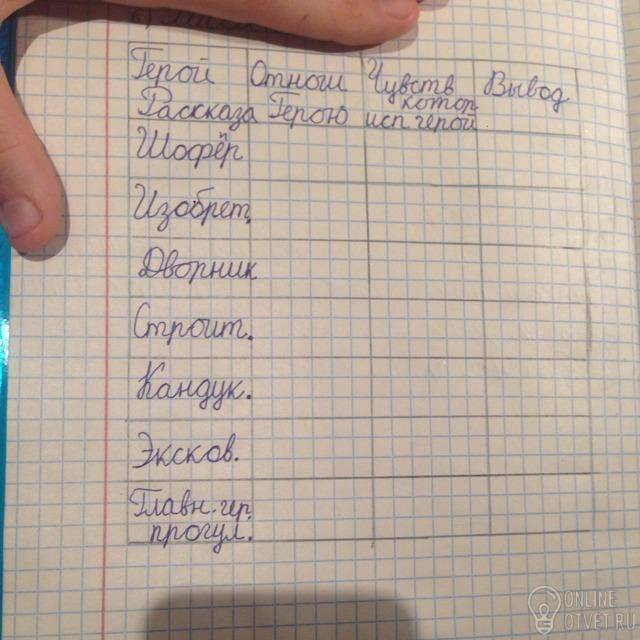 Герой Отнош Чувств Вывод
Рассказа Герою котор
исп герой
Шофёр
Изобрет.
Дворник
Строит.
Кандук.
Эксков.
Главн. гер.
прогул.
ONLINE
OTVET.RU